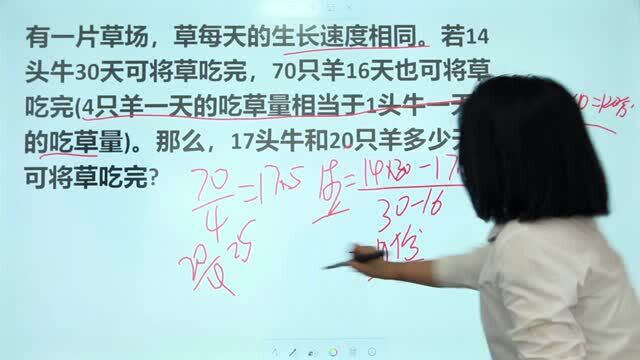 有一片草场，草每天的生长速度相同。若14
头牛30天可将草吃完，70只羊16天也可将草
吃完(4只羊一天的吃草量相当于1头牛一天
的吃草量)。那么，17头牛和20只羊多少
可将草吃完?
70/4=17.5
=14×30-17
30-16